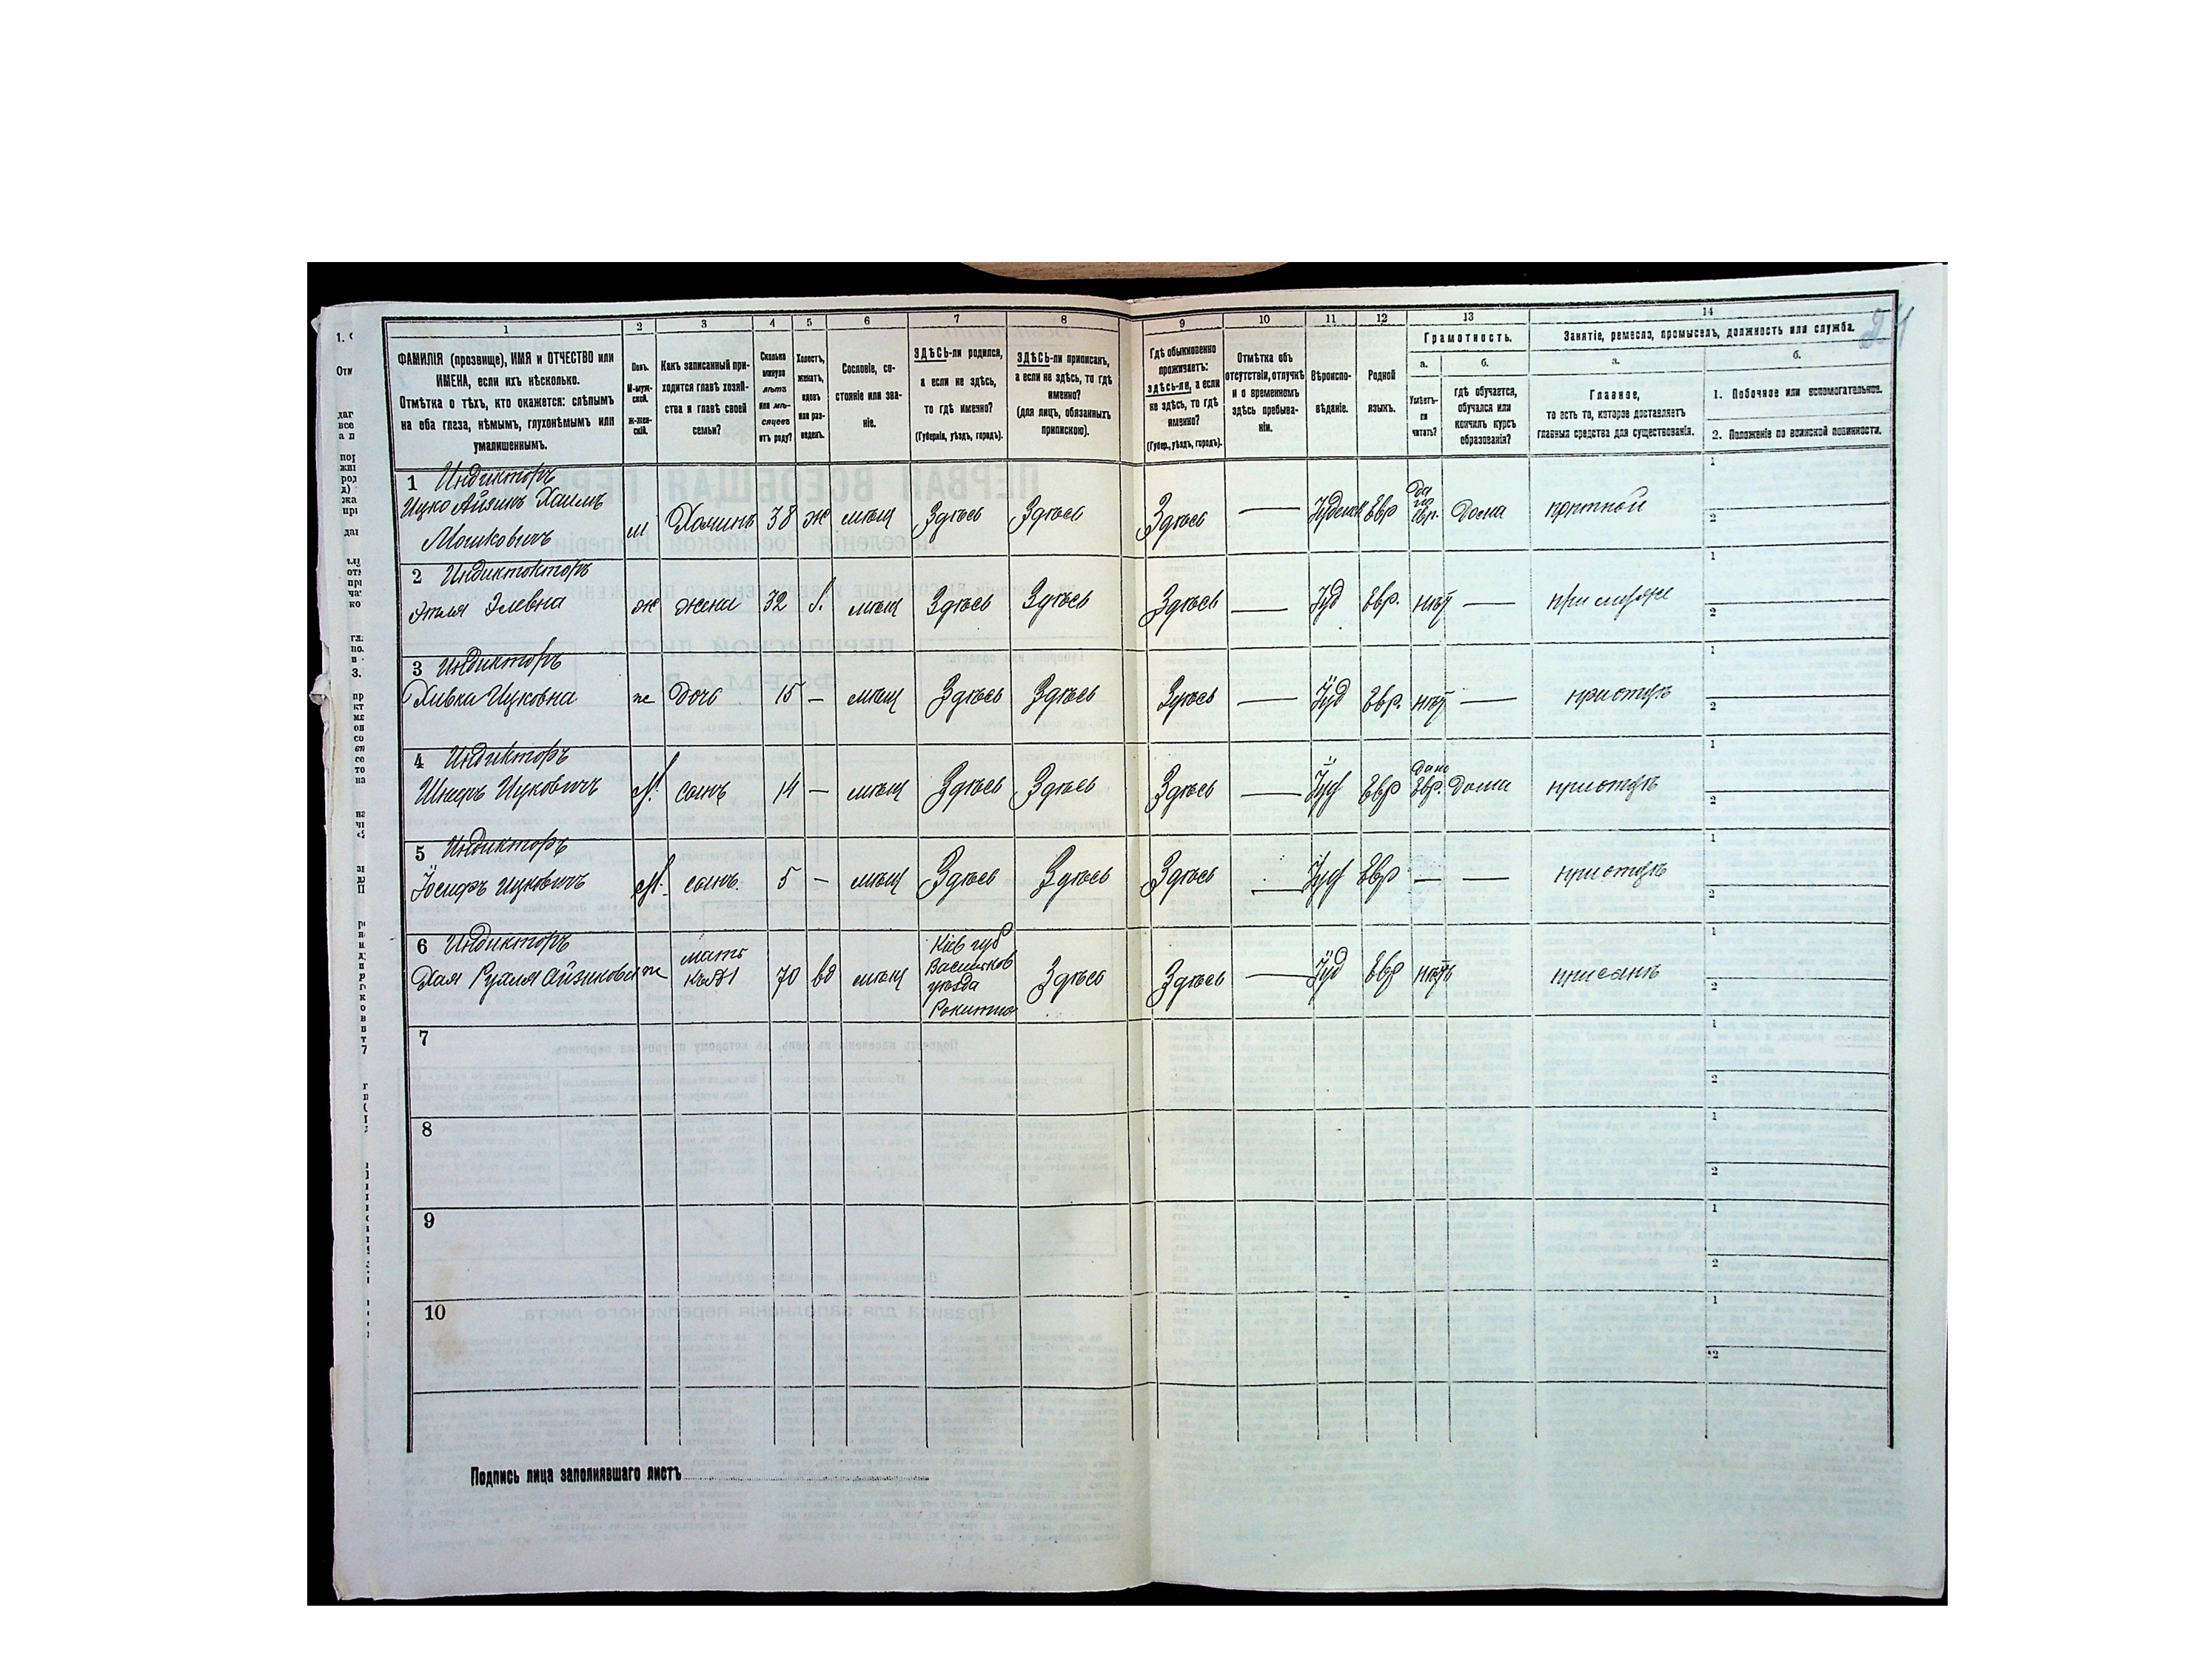 1 2 3 4 5 6 7 8 9 10 11 12 13 14
ФАМИЛІЯ (прозвище), ИМЯ и ОТЧЕСТВО или
ИМЕНА, если ихъ нѣсколько.
Отмѣтка о тѣхъ, кто окажется: слѣпымъ
на оба глаза, нѣмымъ, глухонѣмымъ или
умалишеннымъ.
Полъ.
М-муж-
ской.
Ж-жен-
скій.
Какъ записанный при-
ходится главѣ хозяй-
ства и главѣ своей
семьи?
Сколько
минуло
лѣтъ
или мѣ-
сяцевъ
отъ роду?
Холостъ,
женатъ,
вдовъ
или раз-
веденъ.
Сословіе, со-
стояніе или зва-
ніе.
ЗДѢСЬ-ли родился,
а если не здѣсь,
то гдѣ именно?
(Губернія, уѣздъ, городъ).
ЗДѢСЬ-ли приписанъ,
а если не здѣсь, то гдѣ
именно?
(для лицъ, обязанныхъ
припискою).
Гдѣ обыкновенно
проживаетъ:
здѣсь-ли, а если
не здѣсь, то гдѣ
именно?
(Губер., уѣздъ, городъ).
Отмѣтка объ
отсутствіи, отлучкѣ
и о временномъ
здѣсь пребыва-
ніи.
Вѣроиспо-
вѣданіе.
Родной
языкъ.
Грамотность.
а.
Умѣетъ-
ли
читать?
б.
гдѣ обучается,
обучался или
кончилъ курсъ
образованія?
Занятіе, ремесло, промыселъ, должность или служба.
а.
Главное,
то есть то, которое доставляетъ
главныя средства для существованія.
б.
1. Побочное или вспомогательное.
2. Положеніе по воинской повинности.
1 Индикторъ
Ицко Айзикъ Хаимъ
Мошковичъ
м Хозяинъ 38 ж мѣщ Здѣсь Здѣсь Здѣсь — Іудейск Евр Евр. Дома портной
2 Индиктокторъ
Элевна ж жена 32 мѣщ Здѣсь Здѣсь Здѣсь — Іуд Евр. нѣт — при мужѣ
3 Индикторъ
Ривка Ицковна ж Дочь 15 — мѣщ Здѣсь Здѣсь Здѣсь — Іуд Евр. нѣт — при отцѣ
4 Индикторъ
Ицковичъ М. сынъ 14 — мѣщ Здѣсь Здѣсь Здѣсь — Іуд Евр Евр. Дома при отцѣ
5 Индикторъ
Іосифъ Ицковичъ М. сынъ 5 — мѣщ Здѣсь Здѣсь Здѣсь — Іуд Евр — — при отцѣ
6 Индикторъ
Хая Рухля Айзиковна ж мать 70 вд мѣщ Кіев губ
Васильков
уѣзда
Рокитно
Здѣсь Здѣсь — Іуд Евр нѣтъ при сынѣ
7
8
9
10
Подпись лица заполнявшаго листъ